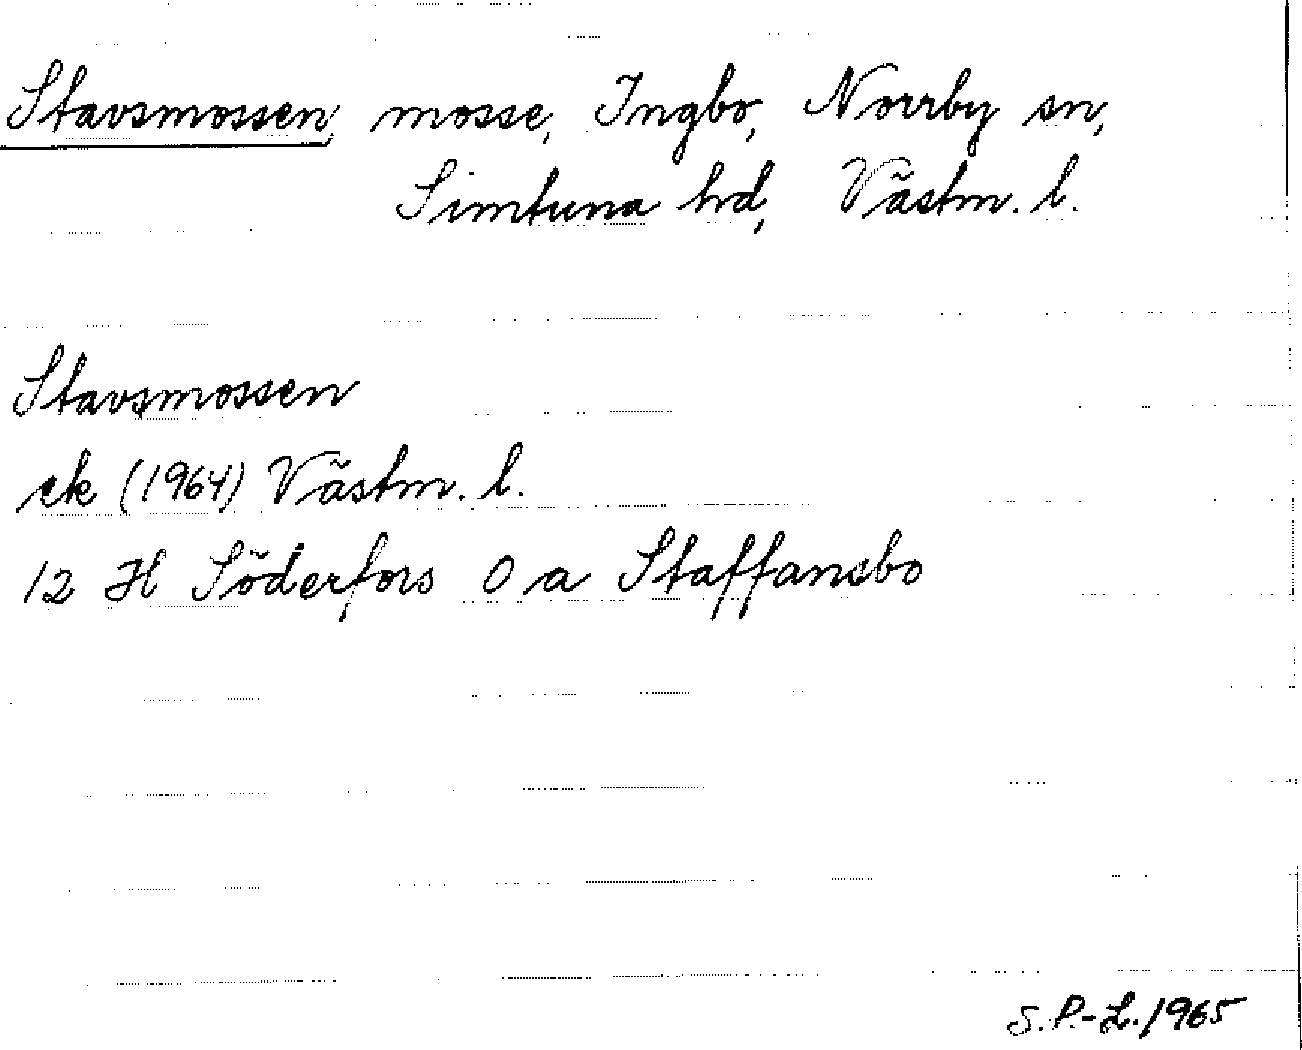 Stavsmossen, mosse, Ingbo, Norrby sn,
Simtuna hd, Västm. l.
Stavsmossen
ek (1964) Västm. l.
12 H Söderfors 0 a Staffansbo
S.P.-L. 1965